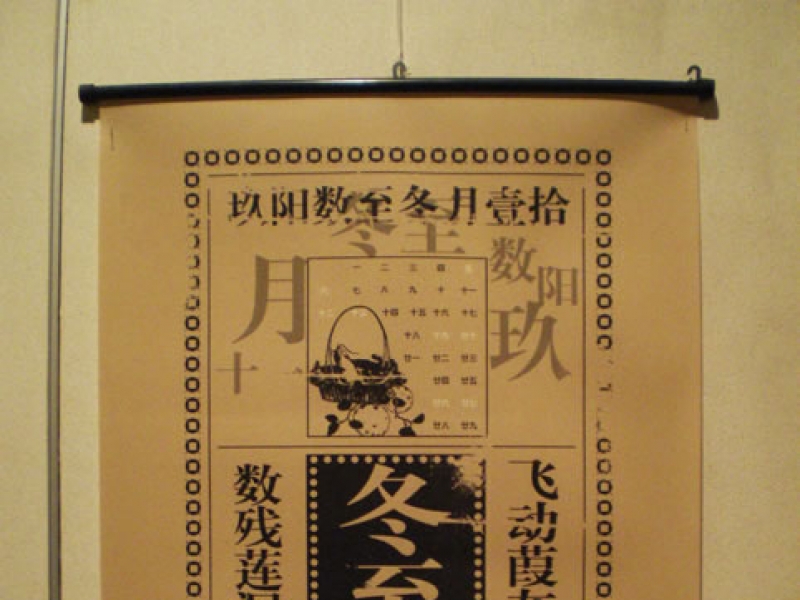 拾壹月冬至数阳玖
冬至
数阳玖
月
十一
一 二 三 四 五
六 七 八 九 十 十一
十二 十三 十四 十五 十六 十七
十八 十九
廿一 廿二 廿三
廿四 廿五
廿六 廿七
廿八 廿九
飞动葭
冬至
数残莲